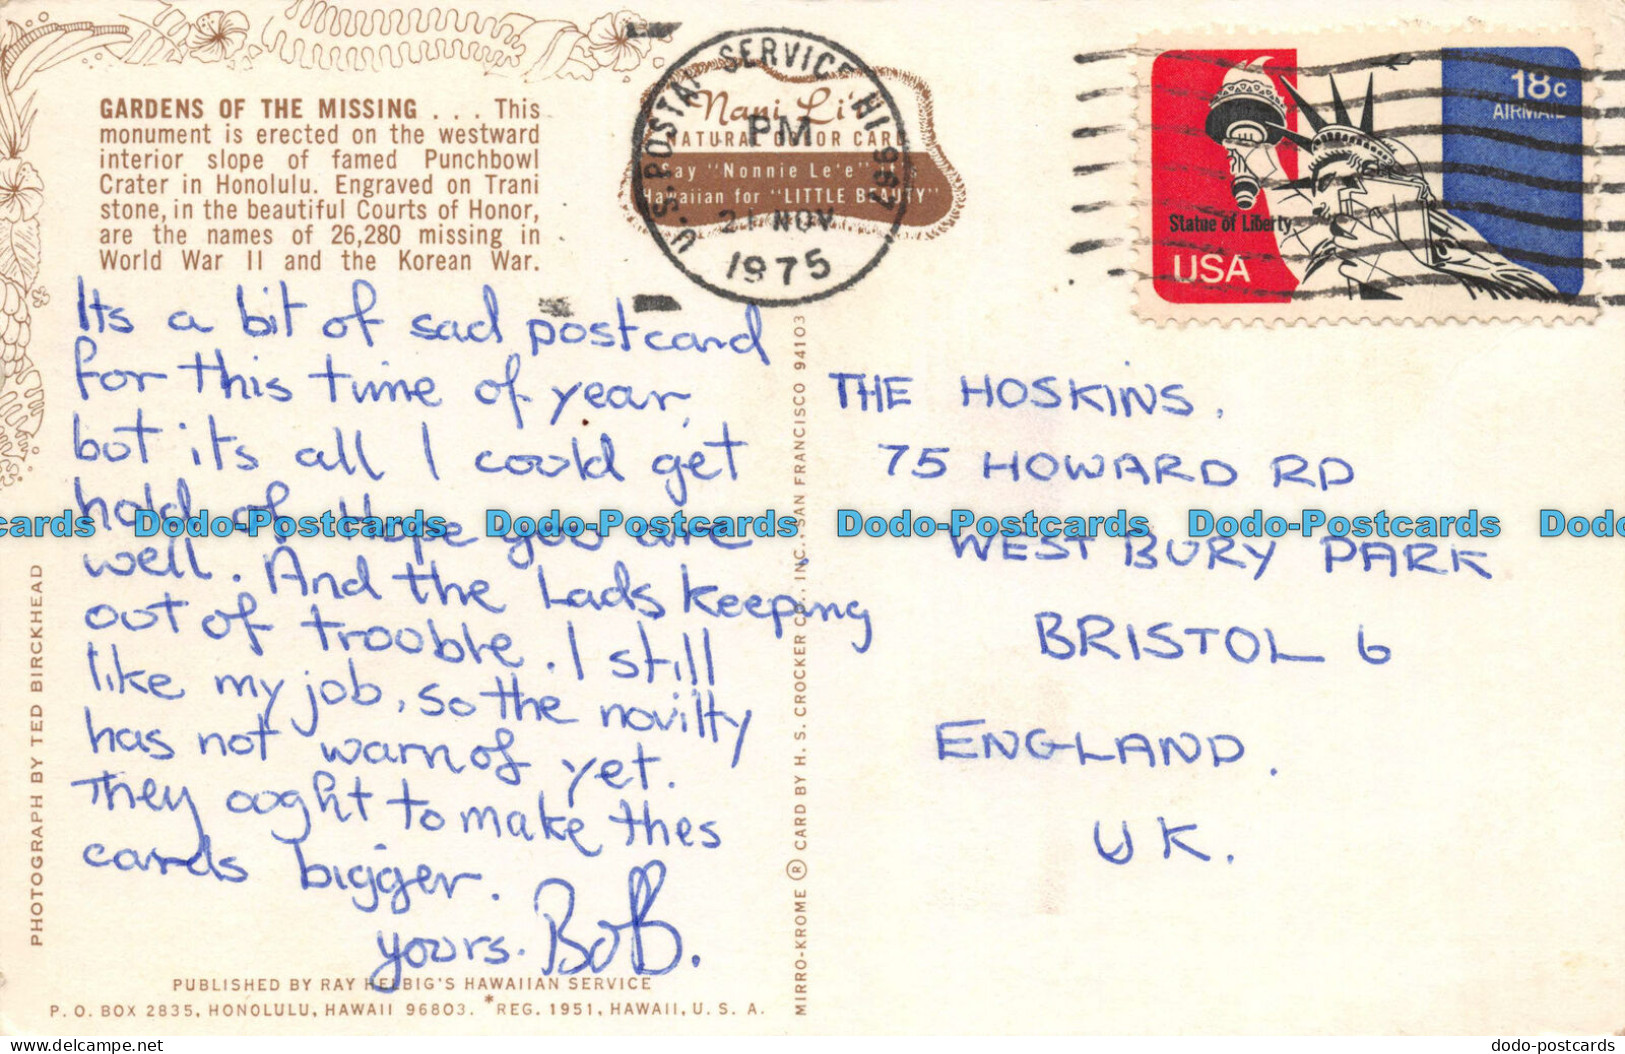 GARDENS OF THE MISSING . . . This
monument is erected on the westward
interior slope of famed Punchbowl
Crater in Honolulu. Engraved on Trani
stone, in the beautiful Courts of Honor,
are the names of 26,280 missing in
World War II and the Korean War.
Its a bit of sad postcard
for this time of year,
but its all I could get
hold of. Hope you are
well. And the Lads keeping
out of trouble. I still
like my job, so the novilty
has not warn of yet.
They ooght to make thes
cards bigger.
yours. Bob.
PHOTOGRAPH BY TED BIRCKHEAD
PUBLISHED BY RAY HELBIG'S HAWAIIAN SERVICE
P. O. BOX 2835, HONOLULU, HAWAII 96803. *REG. 1951, HAWAII, U. S. A.
MIRRO-KROME ® CARD BY H. S. CROCKER CO., INC. SAN FRANCISCO 94103
Nani Li'i
NATURAL COLOR CARD
Say "Nonnie Le'e"
Hawaiian for "LITTLE BEAUTY"
U.S. POSTAL SERVICE HI 967
PM
21 NOV
1975
18c
AIRMAIL
Statue of Liberty
USA
THE HOSKINS.
75 HOWARD RD
WESTBURY PARK
BRISTOL 6
ENGLAND.
UK.
cards Dodo-Postcards Dodo-Postcards Dodo-Postcards Dodo-Postcards Dodo
www.delcampe.net/en
dodo-postcards